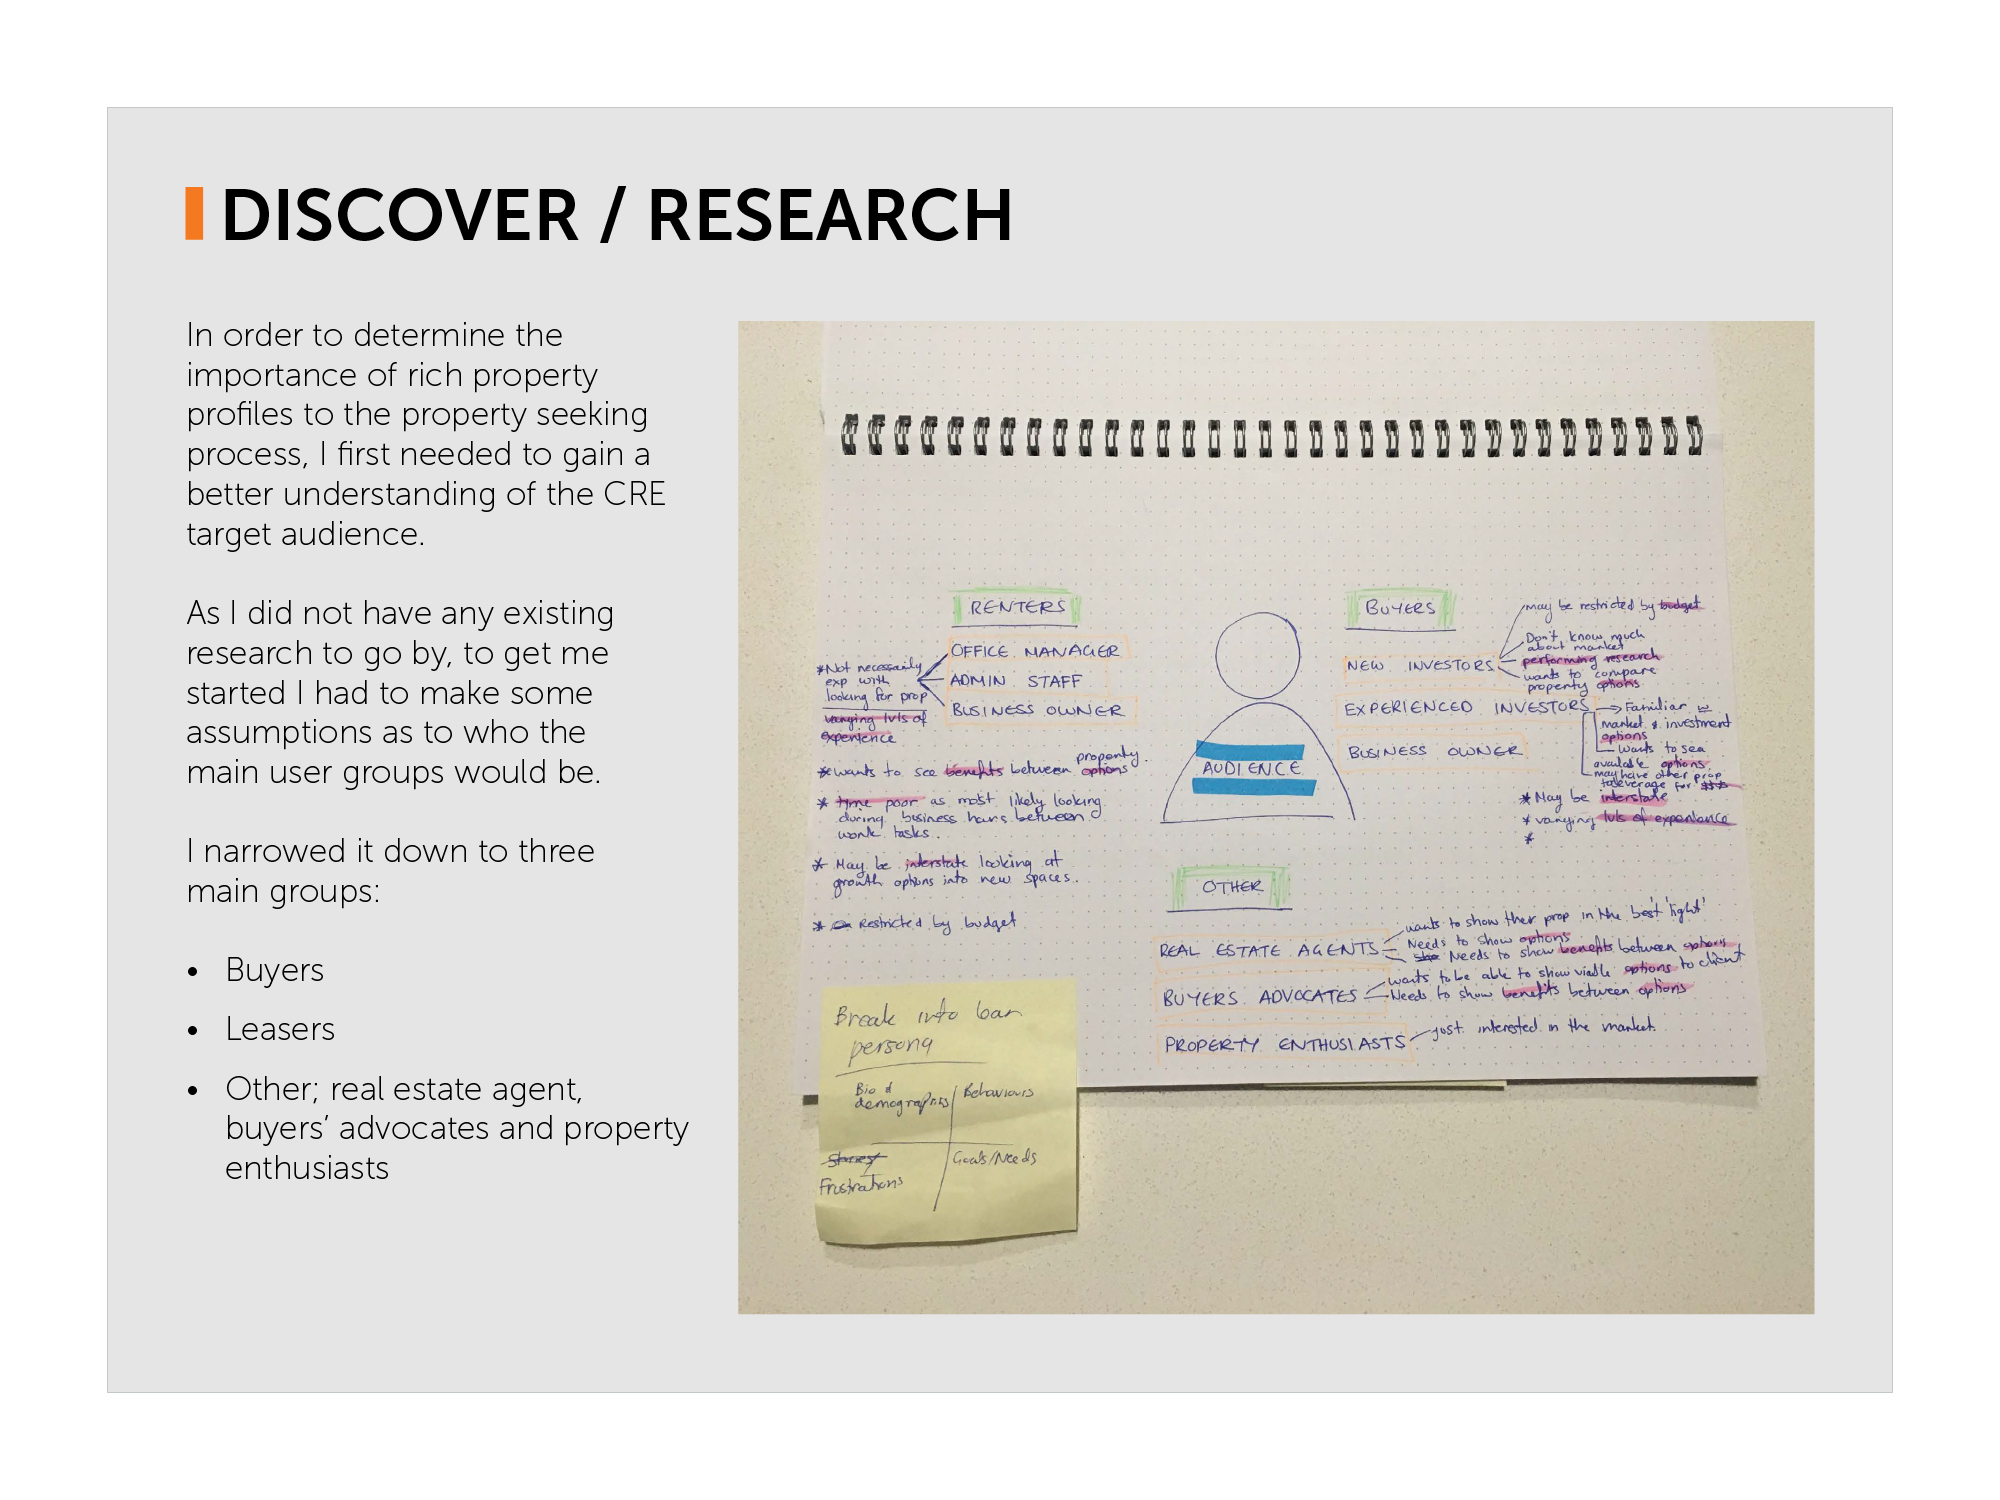 DISCOVER / RESEARCH
In order to determine the
importance of rich property
profiles to the property seeking
process, I first needed to gain a
better understanding of the CRE
target audience.
As I did not have any existing
research to go by, to get me
started I had to make some
assumptions as to who the
main user groups would be.
I narrowed it down to three
main groups:
• Buyers
• Leasers
• Other; real estate agent,
buyers’ advocates and property
enthusiasts
RENTERS
OFFICE MANAGER
ADMIN STAFF
BUSINESS OWNER
*Not necessarily
exp with
looking for prop
varying lvls of
experience
* wants to see benefits between property options
* time poor as most likely looking
during business hours between
work tasks.
* May be interstate looking at
growth options into new spaces.
* Restricted by budget
AUDIENCE
BUYERS
NEW INVESTORS
may be restricted by budget
Don't know much
about market
performing research
wants to compare
property options
EXPERIENCED INVESTORS
Familiar w
market & investment
options
wants to see
available options
may have other prop
to leverage for $$$
BUSINESS OWNER
* May be interstate
* varying lvls of experience
*
OTHER
REAL ESTATE AGENTS
wants to show ther prop in the best 'light'
Needs to show options
Needs to show benefits between options
BUYERS ADVOCATES
wants to be able to show viable options to client
Needs to show benefits between options
PROPERTY ENTHUSIASTS
just interested in the market.
Break into
persona
Bio &
demographics
Behaviours
Frustrations
Goals/Needs